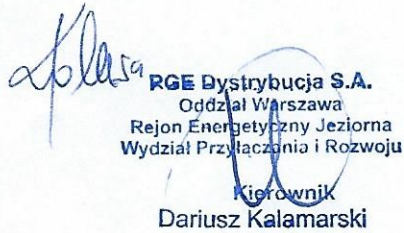 RGE Dystrybucja S.A.
Oddział Warszawa
Rejon Energetyczny Jeziorna
Wydział Przyłączania i Rozwoju
Kierownik
Dariusz Kalamarski